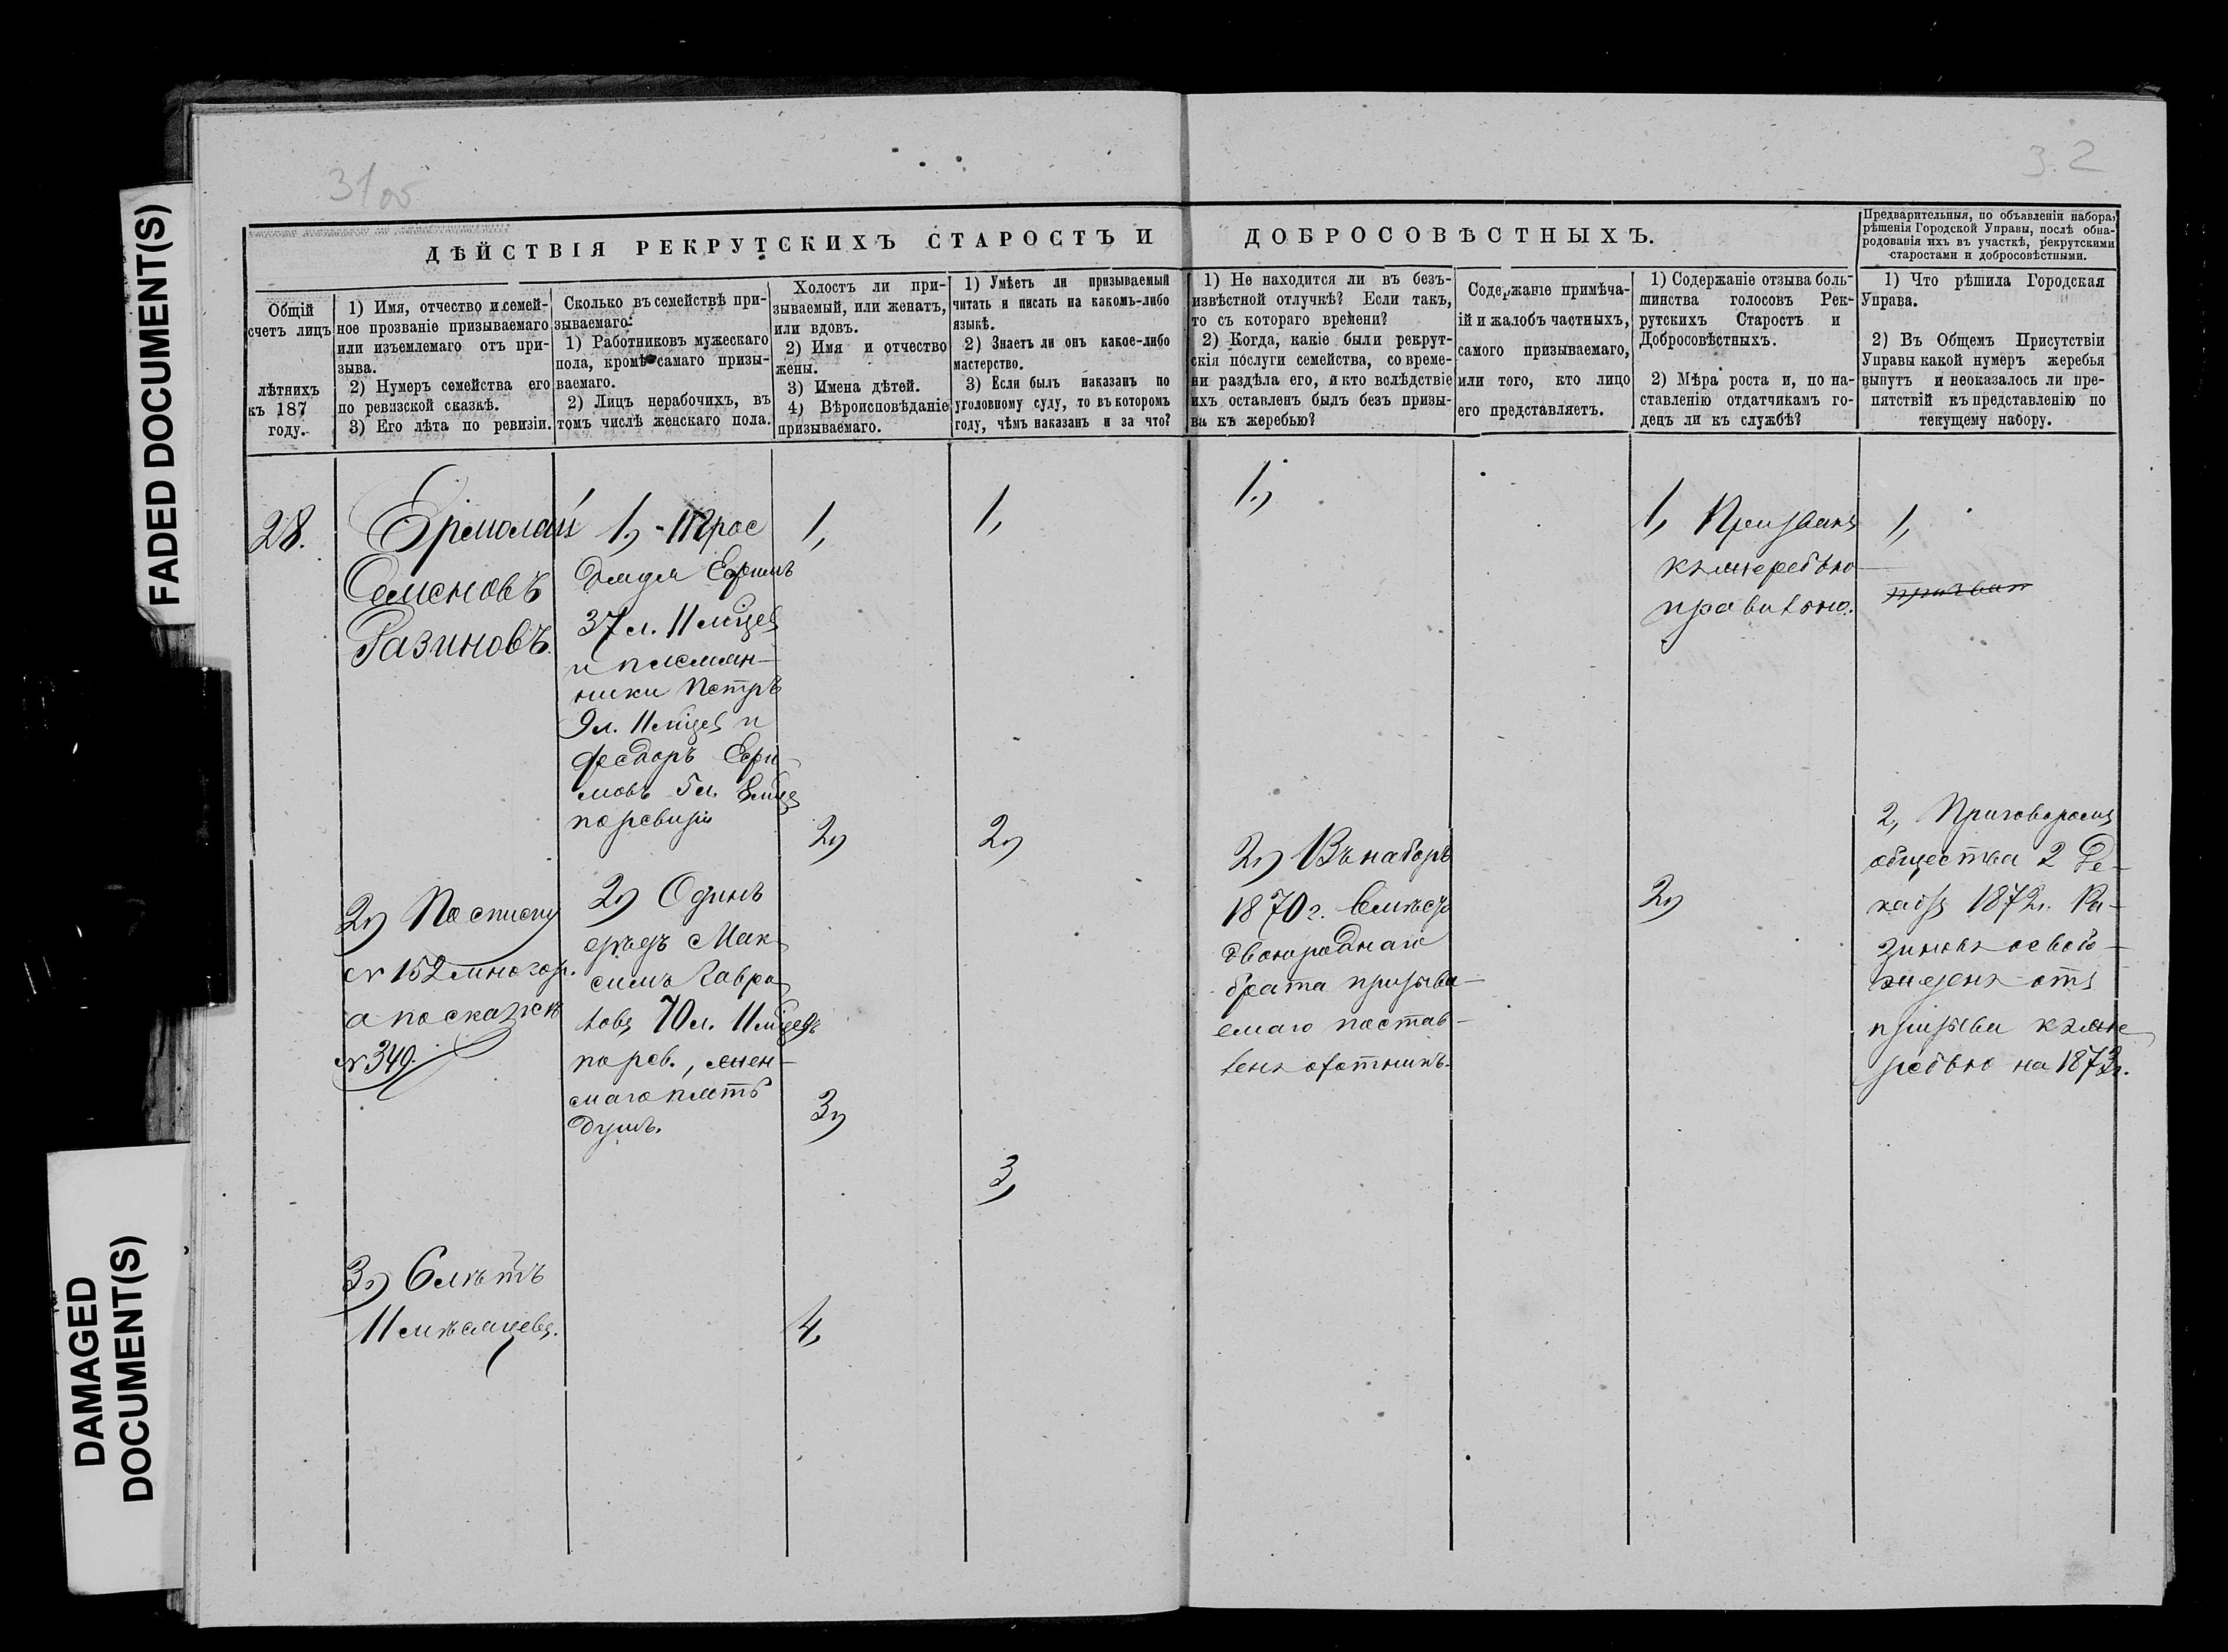 FADED DOCUMENT(S)
DAMAGED
DOCUMENT(S)
31 об
32
ДѢЙСТВІЯ РЕКРУТСКИХЪ СТАРОСТЪ И ДОБРОСОВѢСТНЫХЪ.
Предварительныя, по объявленіи набора,
рѣшенія Городской Управы, послѣ обна-
родованія ихъ въ участкѣ, рекрутскими
старостами и добросовѣстными.
Общій
счетъ лицъ
лѣтнихъ
къ 187
году.
1) Имя, отчество и семей-
ное прозваніе призываемаго
или изъемлемаго отъ при-
зыва.
2) Нумеръ семейства его
по ревизской сказкѣ.
3) Его лѣта по ревизіи.
Сколько въ семействѣ при-
зываемаго:
1) Работниковъ мужескаго
пола, кромѣ самаго призы-
ваемаго.
2) Лицъ нерабочихъ, въ
томъ числѣ женскаго пола.
Холостъ ли при-
зываемый, или женатъ,
или вдовъ.
2) Имя и отчество
жены.
3) Имена дѣтей.
4) Вѣроисповѣданіе
призываемаго.
1) Умѣетъ ли призываемый
читать и писать на какомъ-либо
языкѣ.
2) Знаетъ ли онъ какое-либо
мастерство.
3) Если былъ наказанъ по
уголовному суду, то въ которомъ
году, чѣмъ наказанъ и за что?
1) Не находится ли въ безъ-
извѣстной отлучкѣ? Если такъ,
то съ котораго времени?
2) Когда, какіе были рекрут-
скія послуги семейства, со време-
ни раздѣла его, и кто вслѣдствіе
ихъ оставленъ былъ безъ призы-
ва къ жеребью?
Содержаніе примѣча-
ій и жалобъ частныхъ,
самого призываемаго,
или того, кто лицо
его представляетъ.
1) Содержаніе отзыва боль-
шинства голосовъ Рек-
рутскихъ Старостъ и
Добросовѣстныхъ.
2) Мѣра роста и, по на-
ставленію отдатчикамъ го-
денъ ли къ службѣ?
1) Что рѣшила Городская
Управа.
2) Въ Общемъ Присутствіи
Управы какой нумеръ жеребья
вынутъ и неоказалось ли пре-
пятствій къ представленію по
текущему набору.
28.
Ермолай
Семеновъ
Разиновъ.
2) По списку
№ 152 многор.
а по сказкѣ
№ 349.
3) 6 лѣтъ
11 мѣсяцевъ.
1)
дядя Ефимъ
37 л. 11 мцев
и племян-
ники Петръ
9 л. 11 мцев и
Федоръ Ефи-
мовъ 5 л. 8 мце
по ревизіи
2) Одинъ
дѣдъ Мак-
симъ Гаври-
ловъ 70 л. 11 мцевъ
по рев.,
пять
душъ.
1,
2)
3)
4,
1,
2)
3,
1.)
2) Въ наборъ
1870 г. вмѣсто
двоюроднаго
брата призыва-
емаго постав-
ленъ охотникъ.
1, Призванъ
къ жеребью
правильно.
2)
1,
призван
2, Приговоромъ
общества 2 Де-
кабря 1872 г. Ра-
зиновъ освобо-
жденъ отъ
призыва къ же
ребью на 1873 г.